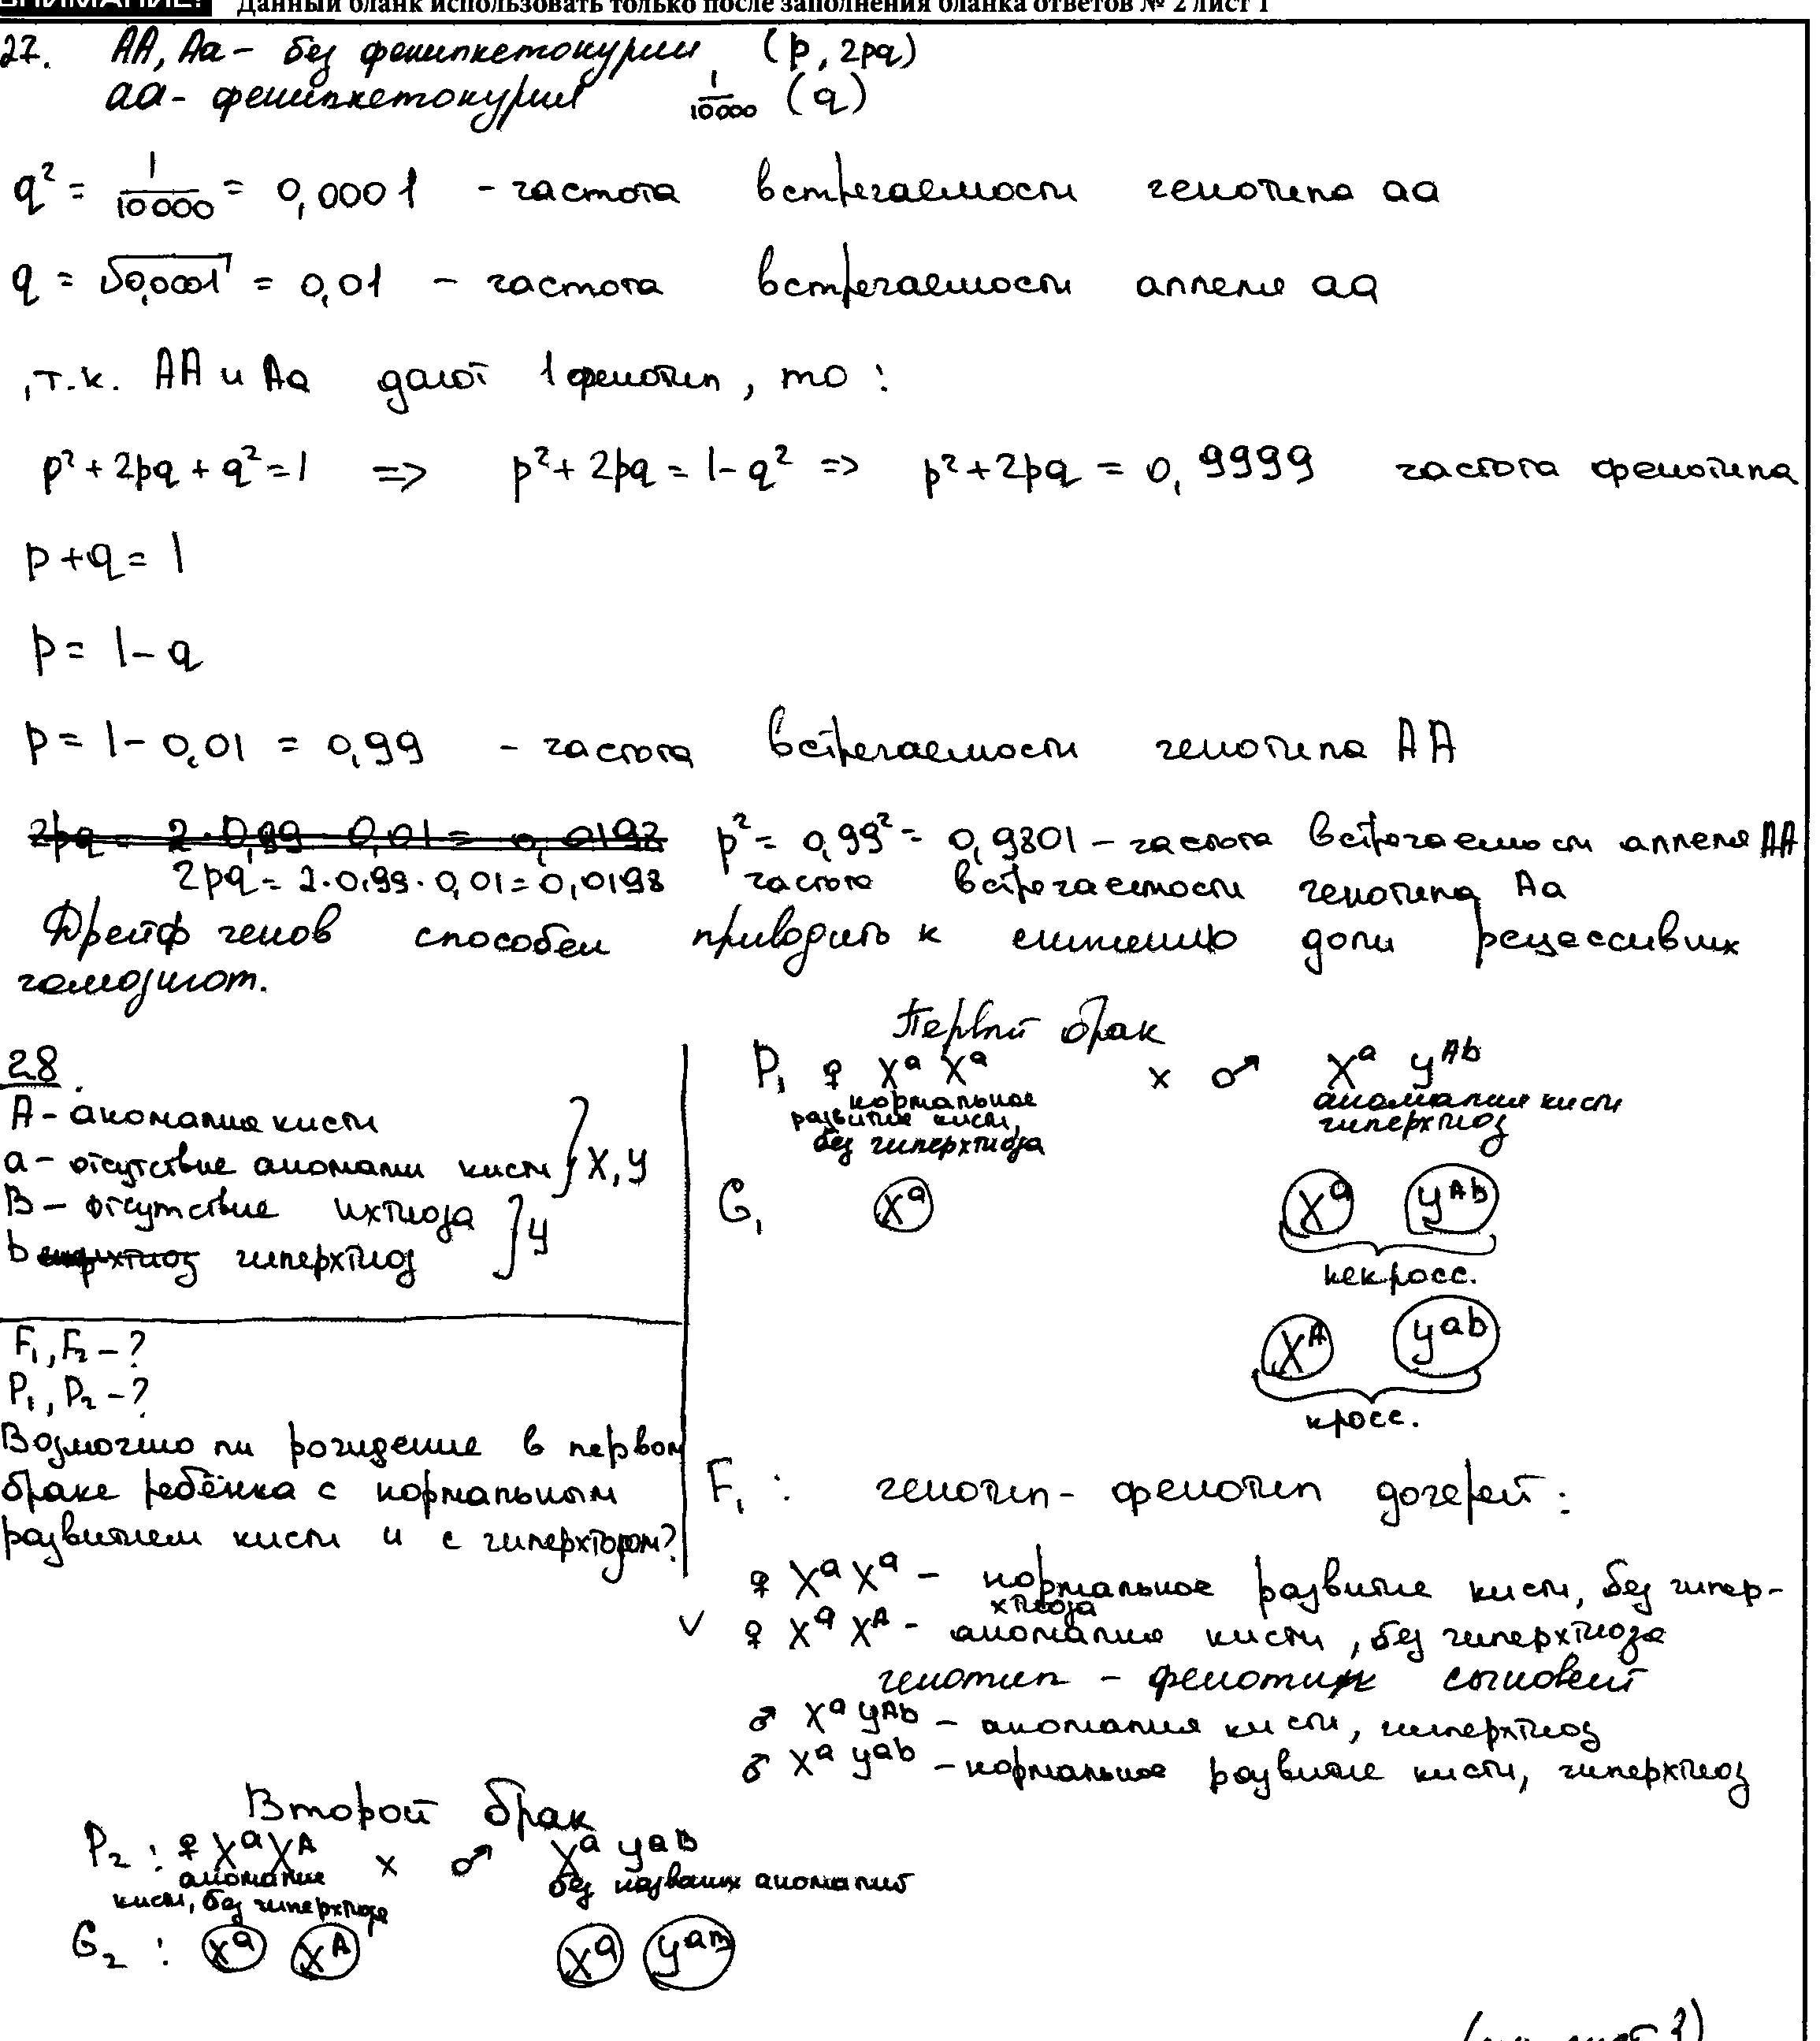 ВНИМАНИЕ! Данный бланк использовать только после заполнения бланка ответов № 2 лист 1
27. AA, Aa - без фенилкетокурии (p, 2pq)
aa - фенилкетокурия 1/10000 (q)
q² = 1/10000 = 0,0001 - частота встречаемости генотипа aa
q = √0,0001 = 0,01 - частота встречаемости аллеля aa
, т.к. AA и Aa дают 1 фенотип, то :
p² + 2pq + q² = 1 => p² + 2pq = 1 - q² => p² + 2pq = 0,9999 частота фенотипа
p + q = 1
p = 1 - q
p = 1 - 0,01 = 0,99 - частота встречаемости генотипа AA
2pq = 2 · 0,99 · 0,01 = 0,0198 p² = 0,99² = 0,9801 - частота встречаемости аллеля AA
2pq = 2 · 0,99 · 0,01 = 0,0198 частота встречаемости генотипа Aa
Дрейф генов способен приводить к снижению доли рецессивных
гомозигот.
28.
A - аномалия кисти
a - отсутствие аномали кисти } X, Y
B - отсутствие ихтиоза
b гиперхтиоз } Y
F₁, F₂ - ?
P₁, P₂ - ?
Возможно ли рождение в первом
браке ребёнка с нормальным
развитием кисти и с гиперхтозом?
Первый брак
P₁ ♀ XᵃXᵃ x ♂ Xᵃ Yᴬᵇ
нормальное развитие кисти, без гиперхтиоза
аномалия кисти гиперхтиоз
G₁ Xᵃ Xᵃ Yᴬᵇ
некросс.
Xᴬ Yᵃᵇ
кросс.
F₁ : генотип - фенотип дочерей :
♀ XᵃXᵃ - нормальное развитие кисти, без гипер-
хтиоза
V ♀ XᵃXᴬ - аномалия кисти, без гиперхтиоза
генотип - фенотип сыновей
♂ Xᵃ Yᴬᵇ - аномалия кисти, гиперхтиоз
♂ Xᵃ Yᵃᵇ - нормальное развитие кисти, гиперхтиоз
Второй брак
P₂ : ♀ XᵃXᴬ x ♂ Xᵃ Yᵃᴮ
аномалия кисти, без гиперхтиоза
без названных аномалий
G₂ : Xᵃ Xᴬ Xᵃ Yᵃᴮ